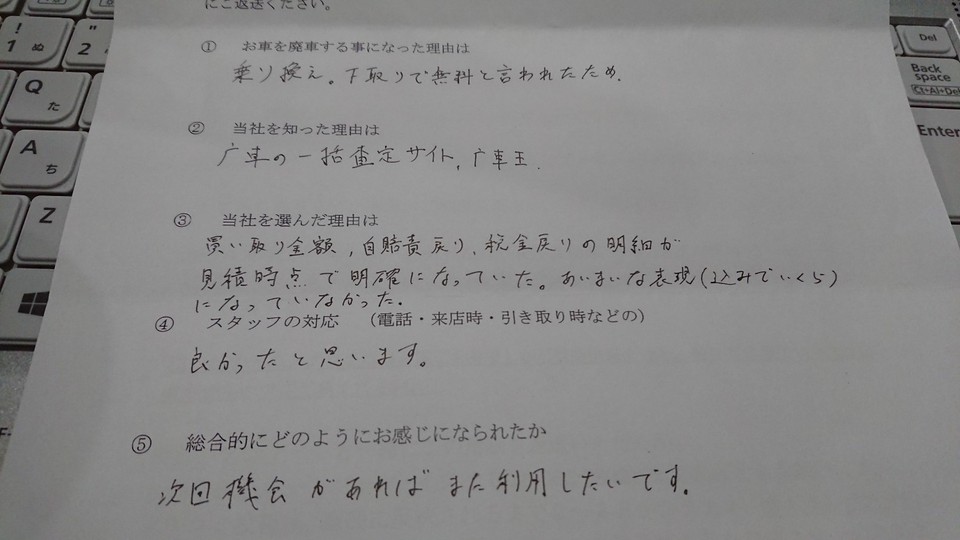 にご返送ください。
① お車を廃車する事になった理由は
乗り換え。下取りで無料と言われたため.
② 当社を知った理由は
广車の一括査定サイト, 广車王.
③ 当社を選んだ理由は
買い取り金額, 自賠責戻り, 税金戻りの明細が
見積時点で明確になっていた。あいまいな表現(込みでいくら)
になっていなかった.
④ スタッフの対応 (電話・来店時・引き取り時などの)
良かったと思います。
⑤ 総合的にどのようにお感じになられたか
次回機会があればまた利用したいです。
!
1 ぬ
"
2
Q
た
A
ち
Z
Del
Back
space
Ctl+Al+Del
Enter